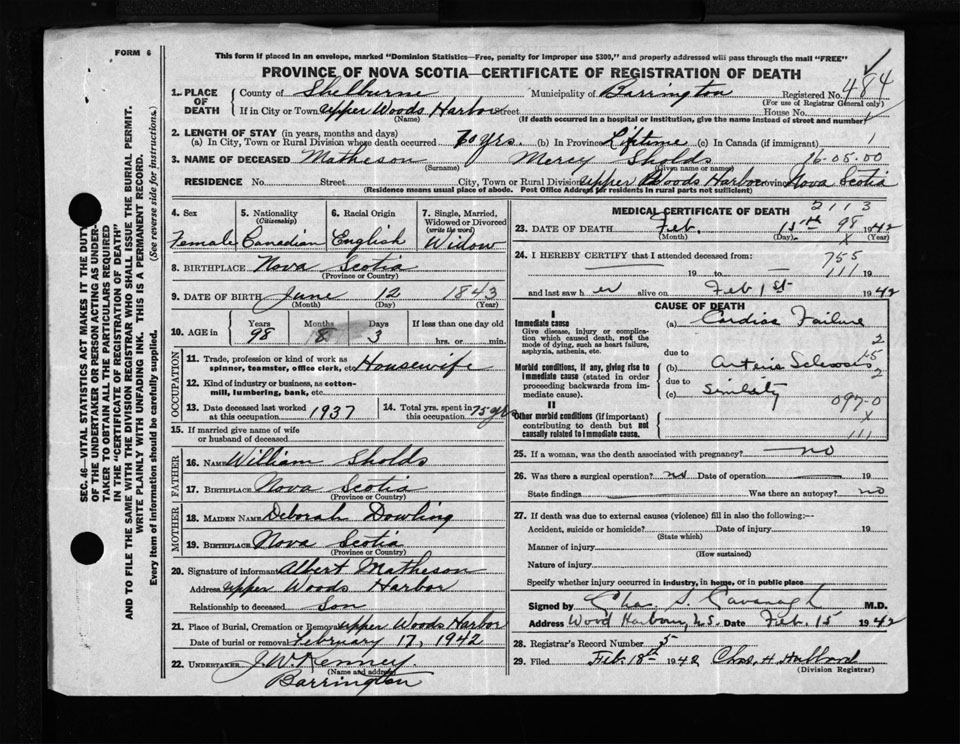 FORM 6
This form if placed in an envelope, marked "Dominion Statistics—Free, penalty for improper use $300," and properly addressed will pass through the mail "FREE"
PROVINCE OF NOVA SCOTIA—CERTIFICATE OF REGISTRATION OF DEATH
1. PLACE OF DEATH County of Shelburne Municipality of Barrington Registered No. 484
(For use of Registrar General only)
If in City or Town Upper Woods Harbor Street House No.
(Name) (If death occurred in a hospital or institution, give the name instead of street and number)
2. LENGTH OF STAY (in years, months and days)
(a) In City, Town or Rural Division where death occurred 70 yrs. (b) In Province Lifetime (c) In Canada (if immigrant) 1
3. NAME OF DECEASED Matheson Mercy Sholds 16-05-00
(Surname) (Given name or names)
RESIDENCE No. Street City, Town or Rural Division Upper Woods Harbor Province Nova Scotia
(Residence means usual place of abode. Post Office Address for residents in rural parts not sufficient)
4. Sex Female
5. Nationality (Citizenship) Canadian
6. Racial Origin English
7. Single, Married, Widowed or Divorced (write the word) Widow
8. BIRTHPLACE Nova Scotia
(Province or Country)
9. DATE OF BIRTH June 12 1843
(Month) (Day) (Year)
10. AGE in Years 98 Months 8 Days 3 If less than one day old hrs. or min.
OCCUPATION
11. Trade, profession or kind of work as spinner, teamster, office clerk, etc. Housewife
12. Kind of industry or business, as cotton-mill, lumbering, bank, etc.
13. Date deceased last worked at this occupation 1937
14. Total yrs. spent in this occupation 75 yrs
15. If married give name of wife or husband of deceased
FATHER
16. NAME William Sholds
17. BIRTHPLACE Nova Scotia
(Province or Country)
MOTHER
18. MAIDEN NAME Deborah Dowling
19. BIRTHPLACE Nova Scotia
(Province or Country)
20. Signature of informant Albert Matheson
Address Upper Woods Harbor
Relationship to deceased Son
21. Place of Burial, Cremation or Removal Upper Woods Harbor
Date of burial or removal February 17, 1942
22. UNDERTAKER J. W. Kenney.
(Name and address)
Barrington
MEDICAL CERTIFICATE OF DEATH 2113
23. DATE OF DEATH Feb. 15th 98 1942
(Month) (Day) x (Year)
24. I HEREBY CERTIFY that I attended deceased from: 755
19 to 111 19
and last saw her alive on Feb 1st 1942
CAUSE OF DEATH
I
Immediate cause
Give disease, injury or complication which caused death, not the mode of dying, such as heart failure, asphyxia, asthenia, etc.
(a) Cardiac Failure
2
due to
Morbid conditions, if any, giving rise to immediate cause (stated in order proceeding backwards from immediate cause).
(b) Arterio Sclerosis 15
2
due to
(c) Senility
097-0
x
II
Other morbid conditions (if important) contributing to death but not causally related to immediate cause.
111
25. If a woman, was the death associated with pregnancy? no
26. Was there a surgical operation? no Date of operation 19
State findings Was there an autopsy? no
27. If death was due to external causes (violence) fill in also the following:—
Accident, suicide or homicide? Date of injury 19
(State which)
Manner of injury
(How sustained)
Nature of injury
Specify whether injury occurred in industry, in home, or in public place
Signed by Chas. S. Cavanagh M.D.
Address Wood Harbour, N.S. Date Feb. 15 1942
28. Registrar's Record Number 5
29. Filed Feb. 18th 1942 Chas. H. Hubbard
(Division Registrar)
SEC. 46—VITAL STATISTICS ACT MAKES IT THE DUTY
OF THE UNDERTAKER OR PERSON ACTING AS UNDER-
TAKER TO OBTAIN ALL THE PARTICULARS REQUIRED
IN THE "CERTIFICATE OF REGISTRATION OF DEATH"
AND TO FILE THE SAME WITH THE DIVISION REGISTRAR WHO SHALL ISSUE THE BURIAL PERMIT.
WRITE PLAINLY WITH UNFADING INK. THIS IS A PERMANENT RECORD.
Every item of information should be carefully supplied. (See reverse side for instructions.)